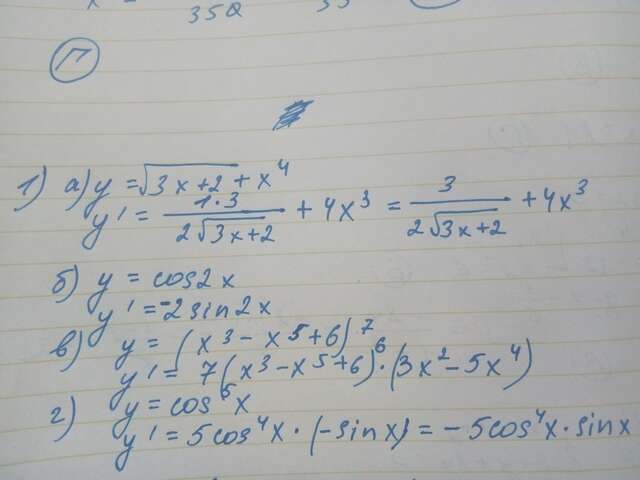 350
П
1) а) y = √3x+2 + x⁴
y' = 1·3 / 2√3x+2 + 4x³ = 3 / 2√3x+2 + 4x³
б) y = cos2x
y' = -2 sin2x
в) y = (x³ - x⁵ + 6)⁷
y' = 7(x³ - x⁵ + 6)⁶ · (3x² - 5x⁴)
г) y = cos⁵x
y' = 5cos⁴x · (-sinx) = -5cos⁴x · sinx